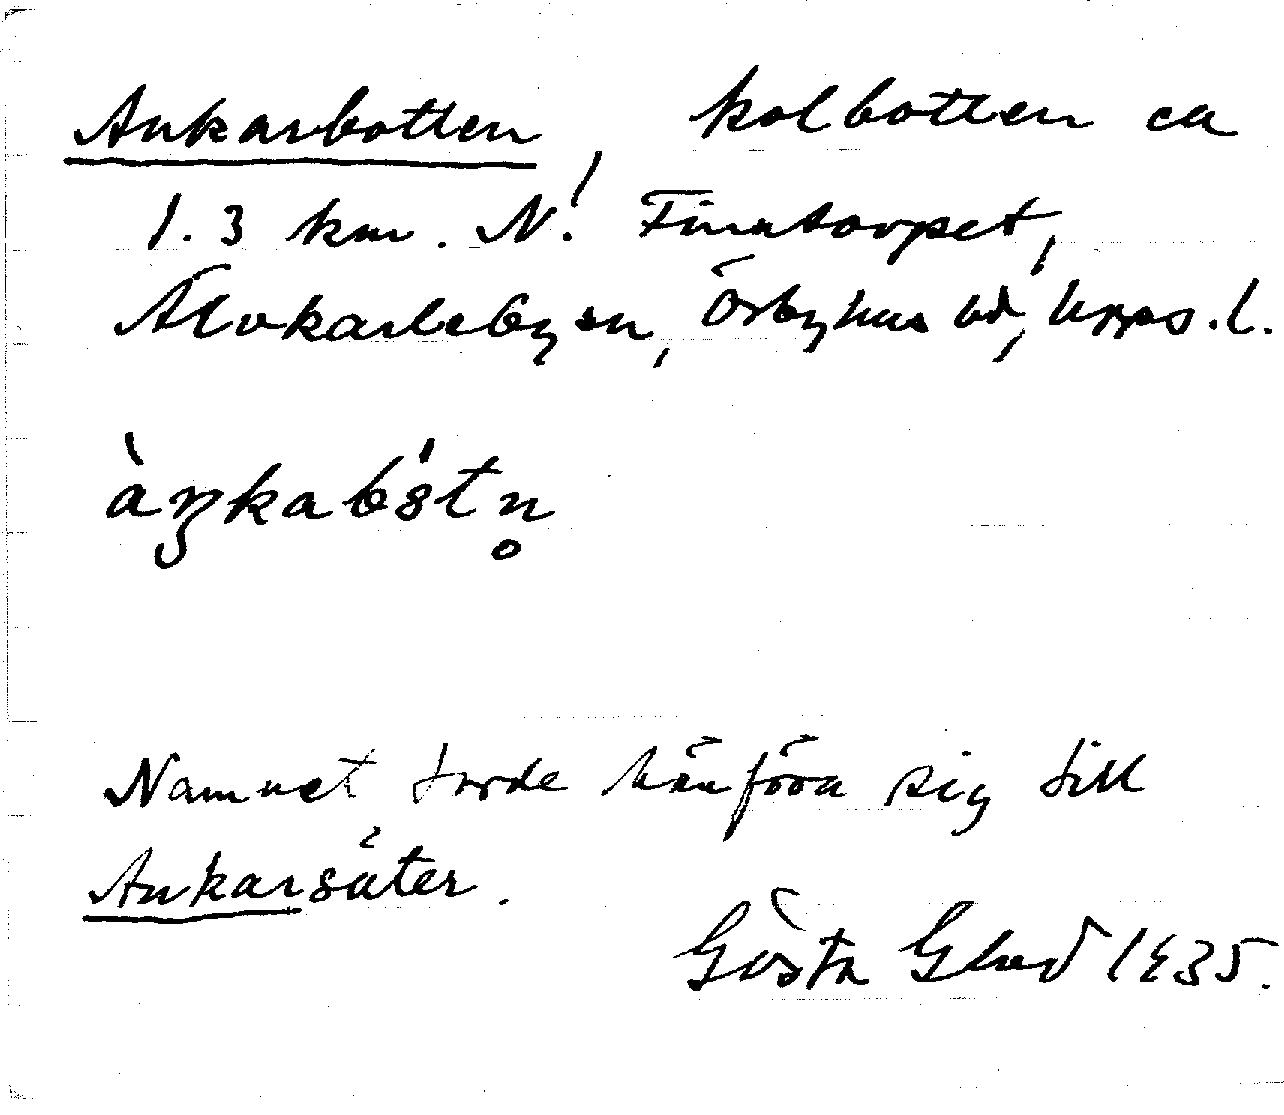 Ankarbotten, kolbotten ca
1.3 km. N. Finntorpet,
Älvkarleby sn, Örbyhus hd, Upps. l.
àŋkabòtn̥
Namnet torde hänföra sig till
Ankarsäter.
Gösta Glad 1935.